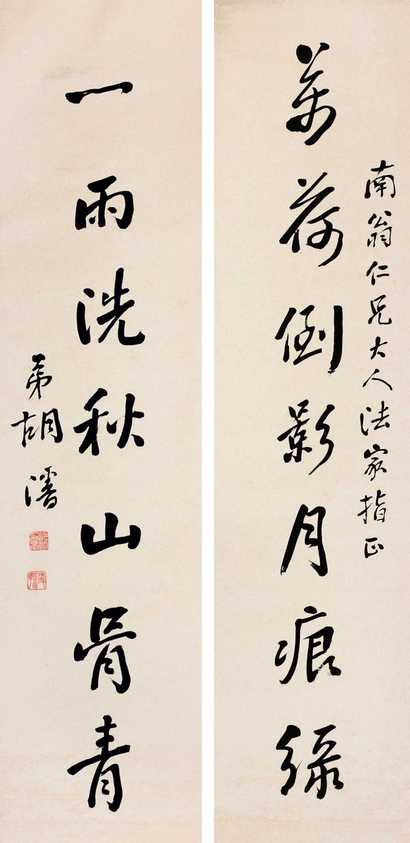 南翁仁兄大人法家指正
萬荷倒影月痕綠
一雨洗秋山骨青
弟胡潘